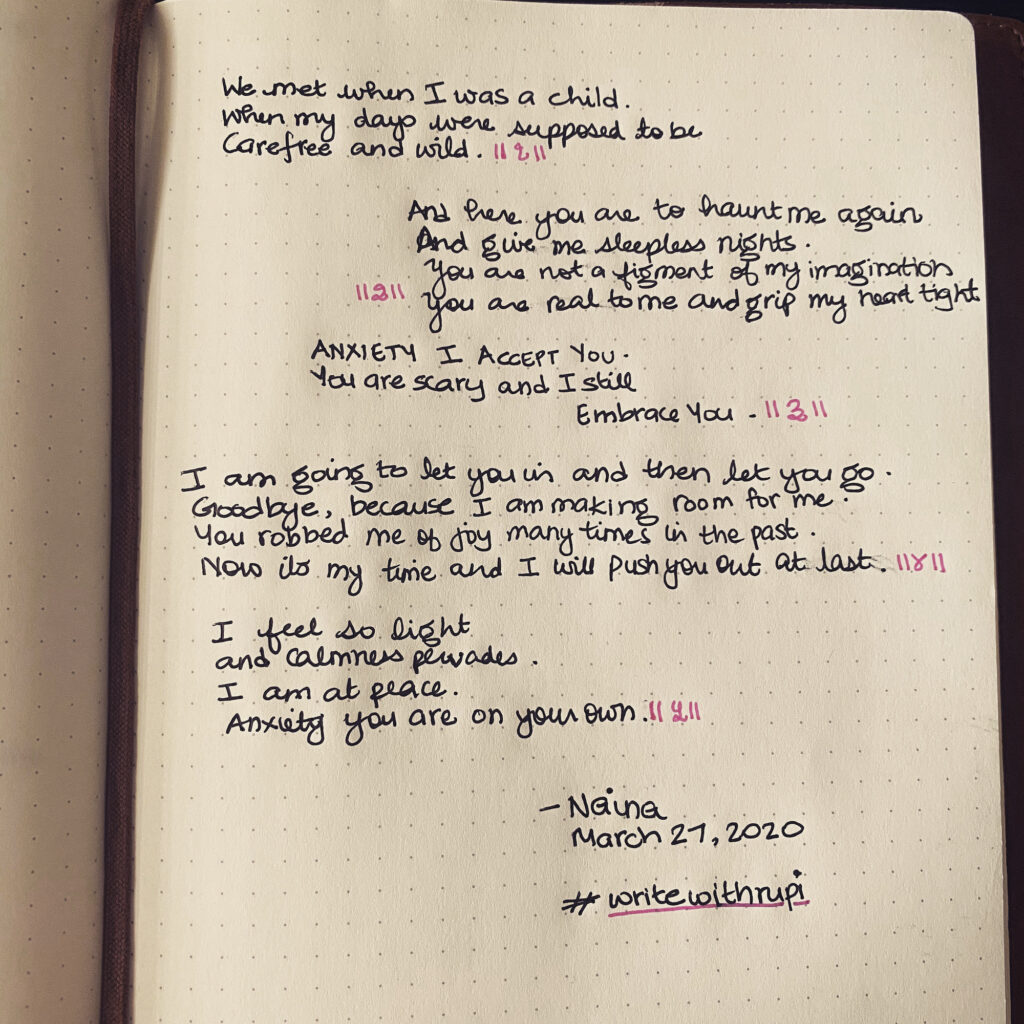 We met when I was a child.
when my days were supposed to be
Carefree and wild. ||१||
And here you are to haunt me again
And give me sleepless nights.
You are not a figment of my imagination
||२|| You are real to me and grip my heart tight
ANXIETY I ACCEPT YOU.
You are scary and I still
Embrace You. ||३||
I am going to let you in and then let you go.
Goodbye, because I am making room for me.
You robbed me of joy many times in the past.
Now its my time and I will push you out at last. ||४||
I feel so light
and calmness pervades.
I am at peace.
Anxiety you are on your own. ||५||
– Naina
March 27, 2020
# writewithrupi